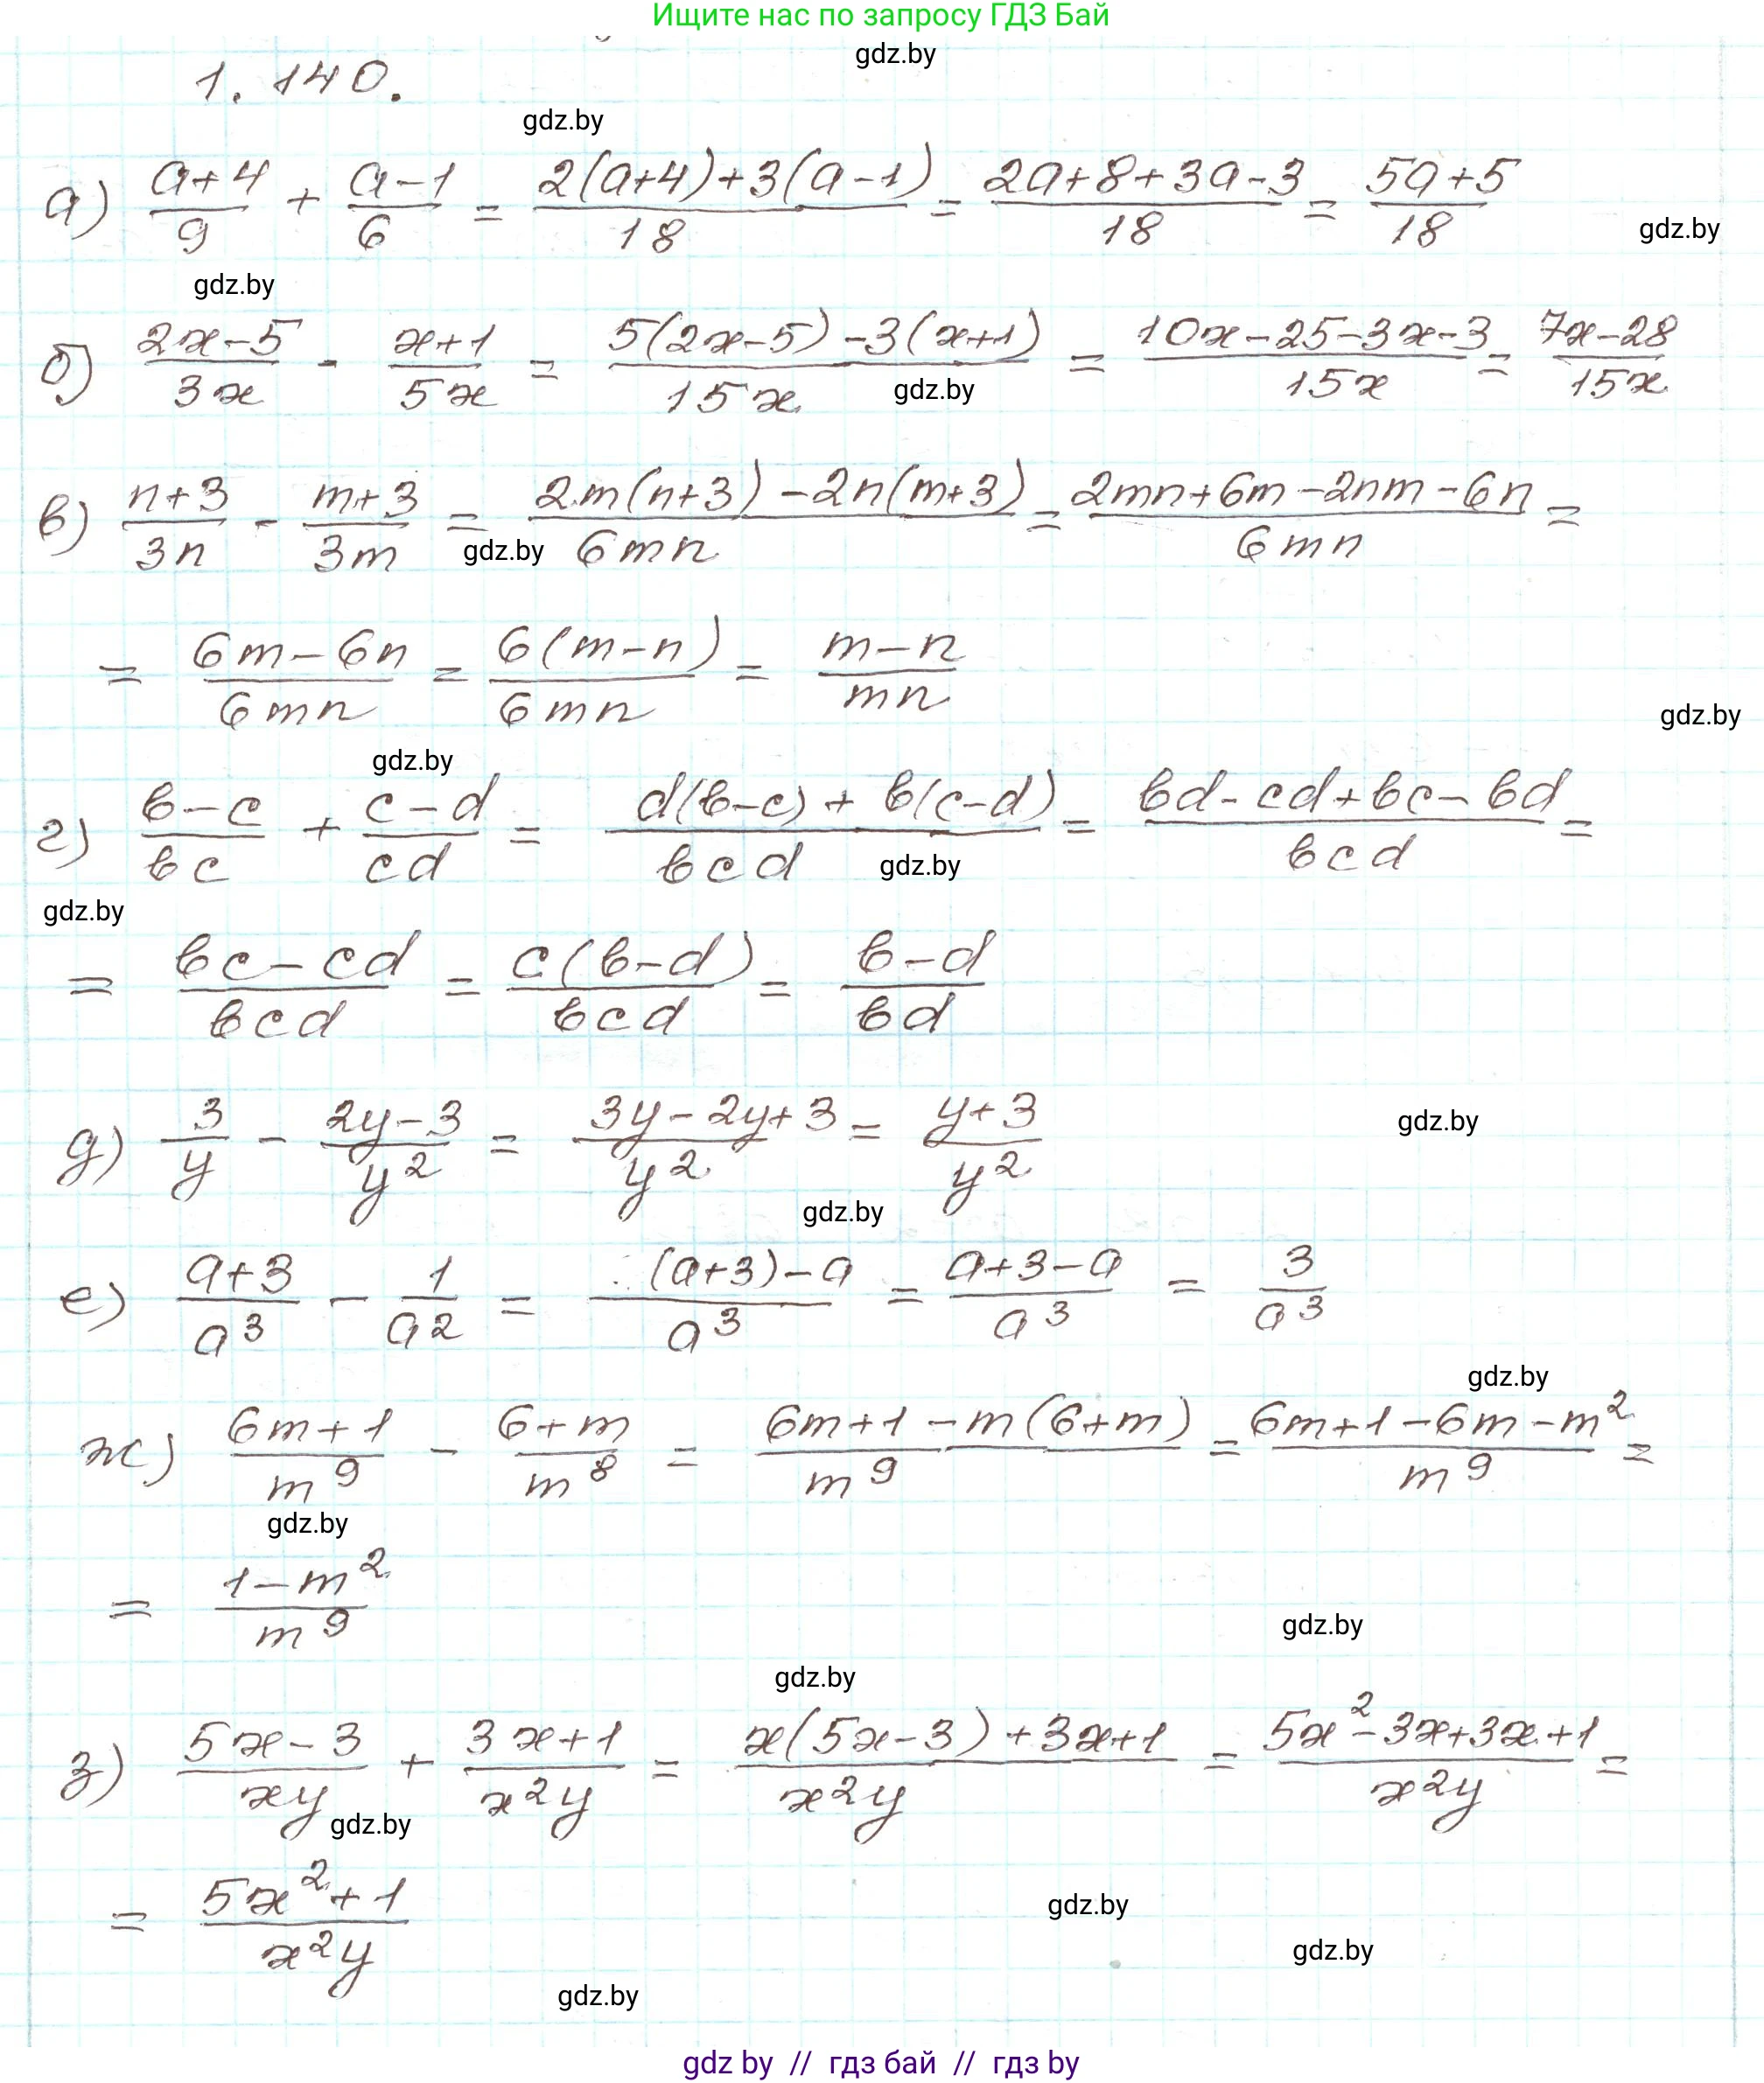 Ищите нас по запросу ГДЗ Бай
gdz.by
1.140.
gdz.by
а) (a+4)/9 + (a-1)/6 = (2(a+4)+3(a-1))/18 = (2a+8+3a-3)/18 = (5a+5)/18
gdz.by
gdz.by
б) (2x-5)/(3x) - (x+1)/(5x) = (5(2x-5)-3(x+1))/(15x) = (10x-25-3x-3)/(15x) = (7x-28)/(15x)
gdz.by
в) (n+3)/(3n) - (m+3)/(3m) = (2m(n+3)-2n(m+3))/(6mn) = (2mn+6m-2nm-6n)/(6mn) =
gdz.by
= (6m-6n)/(6mn) = (6(m-n))/(6mn) = (m-n)/(mn)
gdz.by
gdz.by
г) (b-c)/(bc) + (c-d)/(cd) = (d(b-c)+b(c-d))/(bcd) = (bd-cd+bc-bd)/(bcd) =
gdz.by
gdz.by
= (bc-cd)/(bcd) = (c(b-d))/(bcd) = (b-d)/(bd)
д) 3/y - (2y-3)/y² = (3y-2y+3)/y² = (y+3)/y²
gdz.by
gdz.by
е) (a+3)/a³ - 1/a² = ((a+3)-a)/a³ = (a+3-a)/a³ = 3/a³
gdz.by
ж) (6m+1)/m⁹ - (6+m)/m⁸ = (6m+1-m(6+m))/m⁹ = (6m+1-6m-m²)/m⁹ =
gdz.by
= (1-m²)/m⁹
gdz.by
gdz.by
з) (5x-3)/(xy) + (3x+1)/(x²y) = (x(5x-3)+3x+1)/(x²y) = (5x²-3x+3x+1)/(x²y) =
gdz.by
= (5x²+1)/(x²y)
gdz.by
gdz.by
gdz.by
gdz by // гдз бай // гдз by